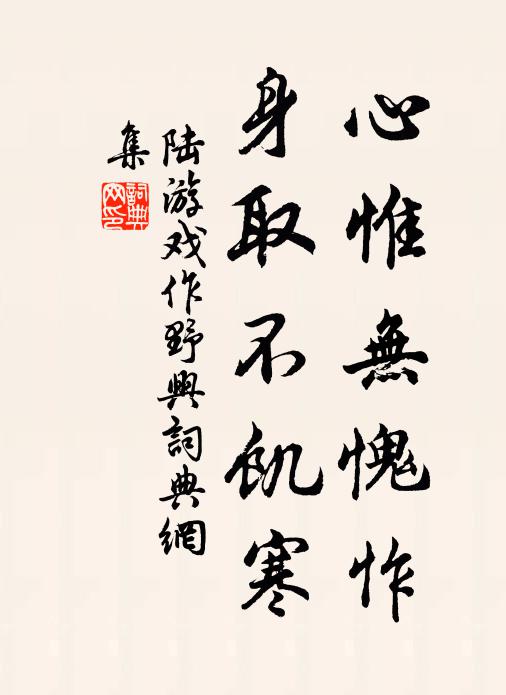 心惟無愧怍
身取不飢寒
陆游戏作野興詞典網
集
詞典
网印